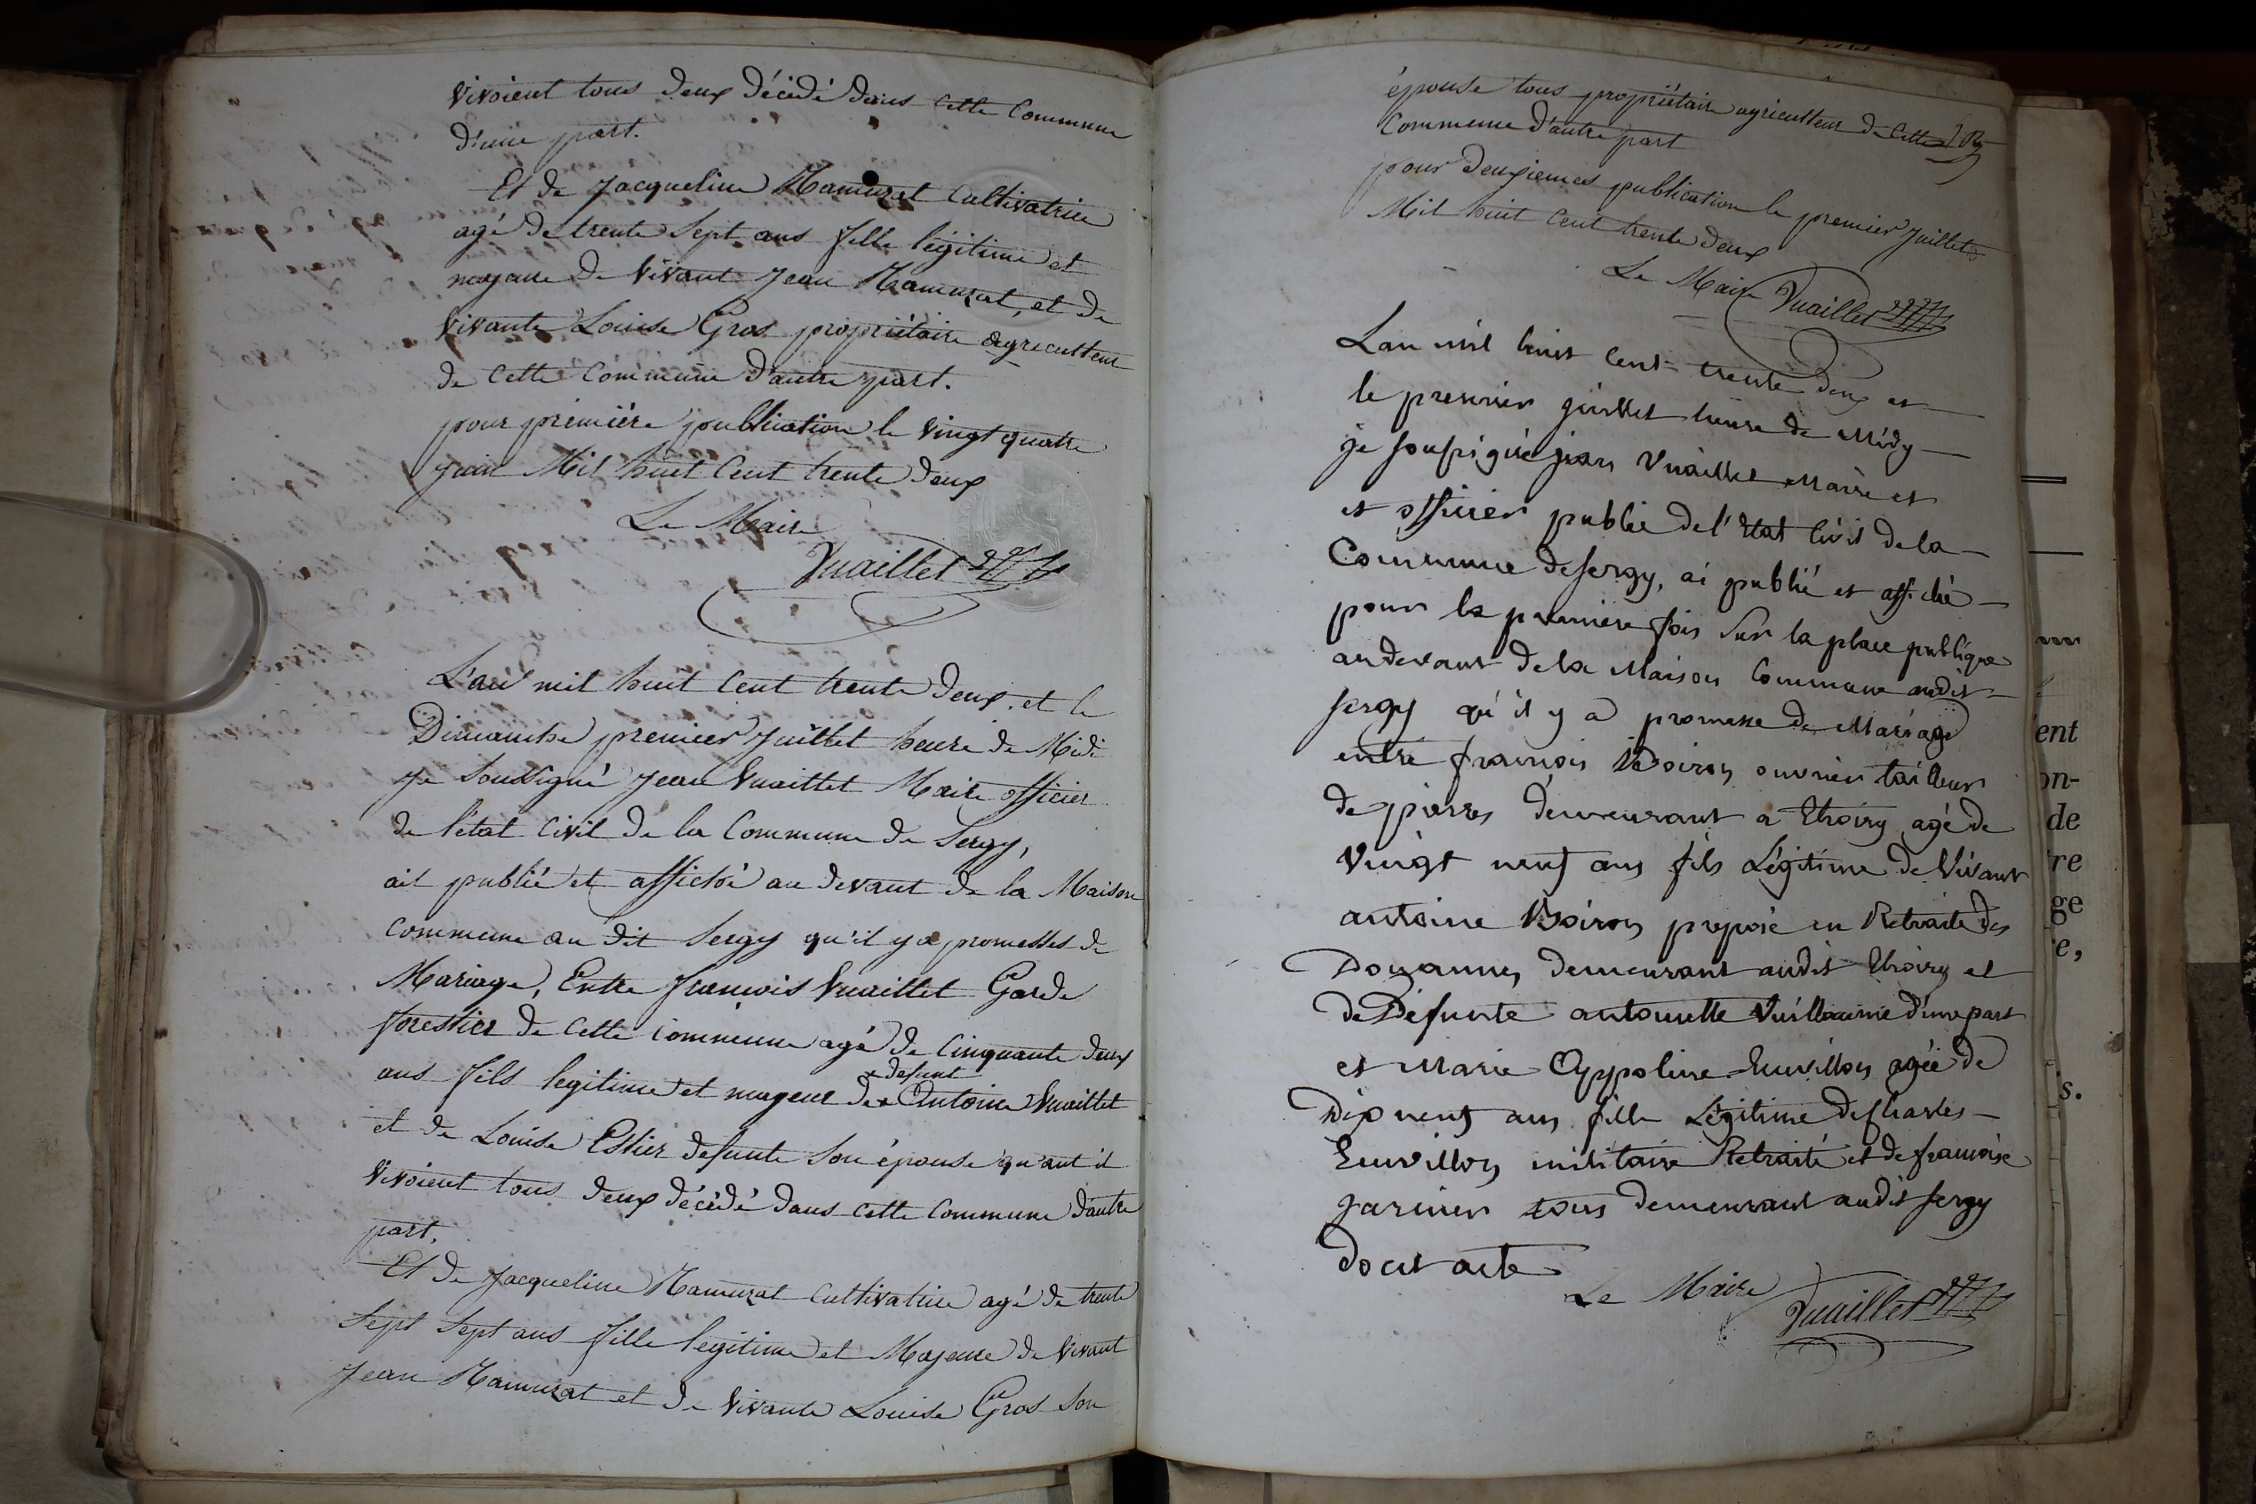 vivoient tous deux décédé dans cette Commune
d'une part.
Et de Jacqueline Mamurat Cultivatrice
agé de trente Sept ans fille légitime et
mageure de vivant Jean Mamurat, et de
vivante Louise Gros propriétaire agriculteur
de cette Commune d'autre part.
pour première publication le vingt quatre
juin Mil huit Cent trente deux
Le Maire
Vuaillet
L'an mil huit Cent trente deux. et le
Dimanche premier Juillet heure de Midi
Je Soussigné Jean Vuaillet Maire officier
de l'état Civil de la Commune de Sergy,
ait publié et affiché au devant de la Maison
Commune au dit Sergy qu'il y a promesses de
Mariage, Entre françois Vuaillet Garde
forestier de cette Commune agé de Cinquante deux
ans fils legitime et mageur de defunt Antoine Vuaillet
et de Louise Estier defunte Son épouse qu'ant il
vivoient tous deux décédé dans cette Commune d'autre
part,
Et de Jacqueline Mamurat Cultivatrice agé de trente
Sept Sept ans fille legitime et Majeure de vivant
Jean Mamurat et de vivante Louise Gros Son
épouse tous propriétaire agriculteur de cette
Commune d'autre part
pour deuxiemes publication le premier Juillet
Mil huit Cent trente deux
Le Maire Vuaillet
Lan mil huit Cent trente deux et
le premier juillet heure de Midy
je Soussigné jean Vuaillet Maire et
et officier public de l'Etat Civil de la
Commune de Sergy, ai publié et affiché
pour la premiere fois Sur la place publique
audevant de la Maison Commune audit
Sergy qu'il y a promesse de Mariage
entre françois Boiron ouvrier tailleur
de pierres demeurant a Thoiry agé de
Vingt neuf ans fils Légitime de Vivant
antoine Boiron preposé en Retraite des
Douannes demeurant audit Thoiry et
de Defunte antoinette Vuillaume d'une part
et Marie Appoline Euvillon agée de
Dix neuf ans fille Légitime de Charles
Euvillon militaire Retraité et de françoise
garinier tous demeurant audit Sergy
dont acte
Le Maire Vuaillet
ent
on-
de
re
ge
e,
s.